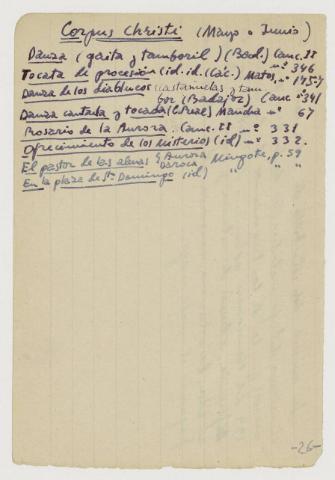 Corpus Christi (Mayo o Junio)
Danza (gaita y tamboril) (Bad.) Canc. II nº 346
Tocata de procesión (id. id. Các.) Matos, nº
Danza de los diablucos (castañuelas y tam
bor (Badajoz) Canc nº 341
Danza cantada y tocada (C. Real) Mancha nº 67
Rosario de la Aurora. Canc. II nº 331
Ofrecimiento de los Misterios (id) nº 332.
El pastor de las almas (Aurora Daroca Mingote, p. 59
En la plaza de Sto. Domingo (id) " " "
-26-